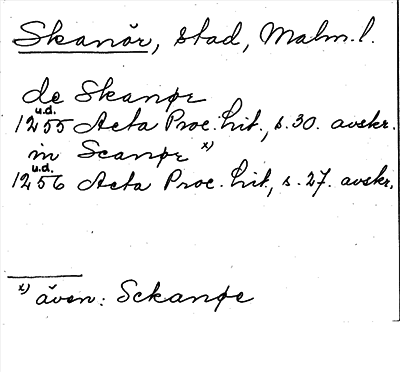 Skanör, stad, Malm.l.
de Skanøe
u.d.
1255 Acta Proc. lit., s. 30. avskr.
in Scanøe x)
u.d.
1256 Acta Proc. lit., s. 27. avskr.
x) även: Sckanøe